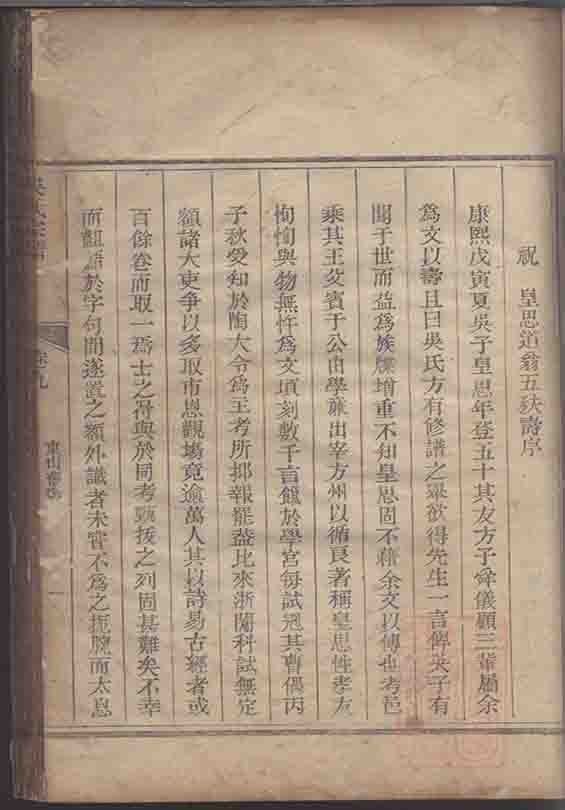 祝　皇思道翁五秩壽序
康熙戊寅夏吳子皇思年登五十其友方子舜儀顧三輩屬余
為文以壽且曰吳氏方有修譜之舉欲得先生一言俾吳子有
聞于世而益為族牒增重不知皇思固不藉余文以傳也考邑
乘其王父賓于公由學蔴出宰方州以循良著稱皇思性孝友
恂恂與物無忤為文頃刻數千言餼於學宮每試冠其曹偶丙
子秋受知於陶大令為主考所抑報罷蓋比來浙闈科試無定
額諸大吏爭以多取市恩觀場竟逾萬人其以詩易古經者或
百餘卷而取一焉士之得與於同考甄拔之列固甚難矣不幸
而齟齬於字句間遂置之額外識者未甞不為之扼腕而太息
吳氏宗譜
卷九